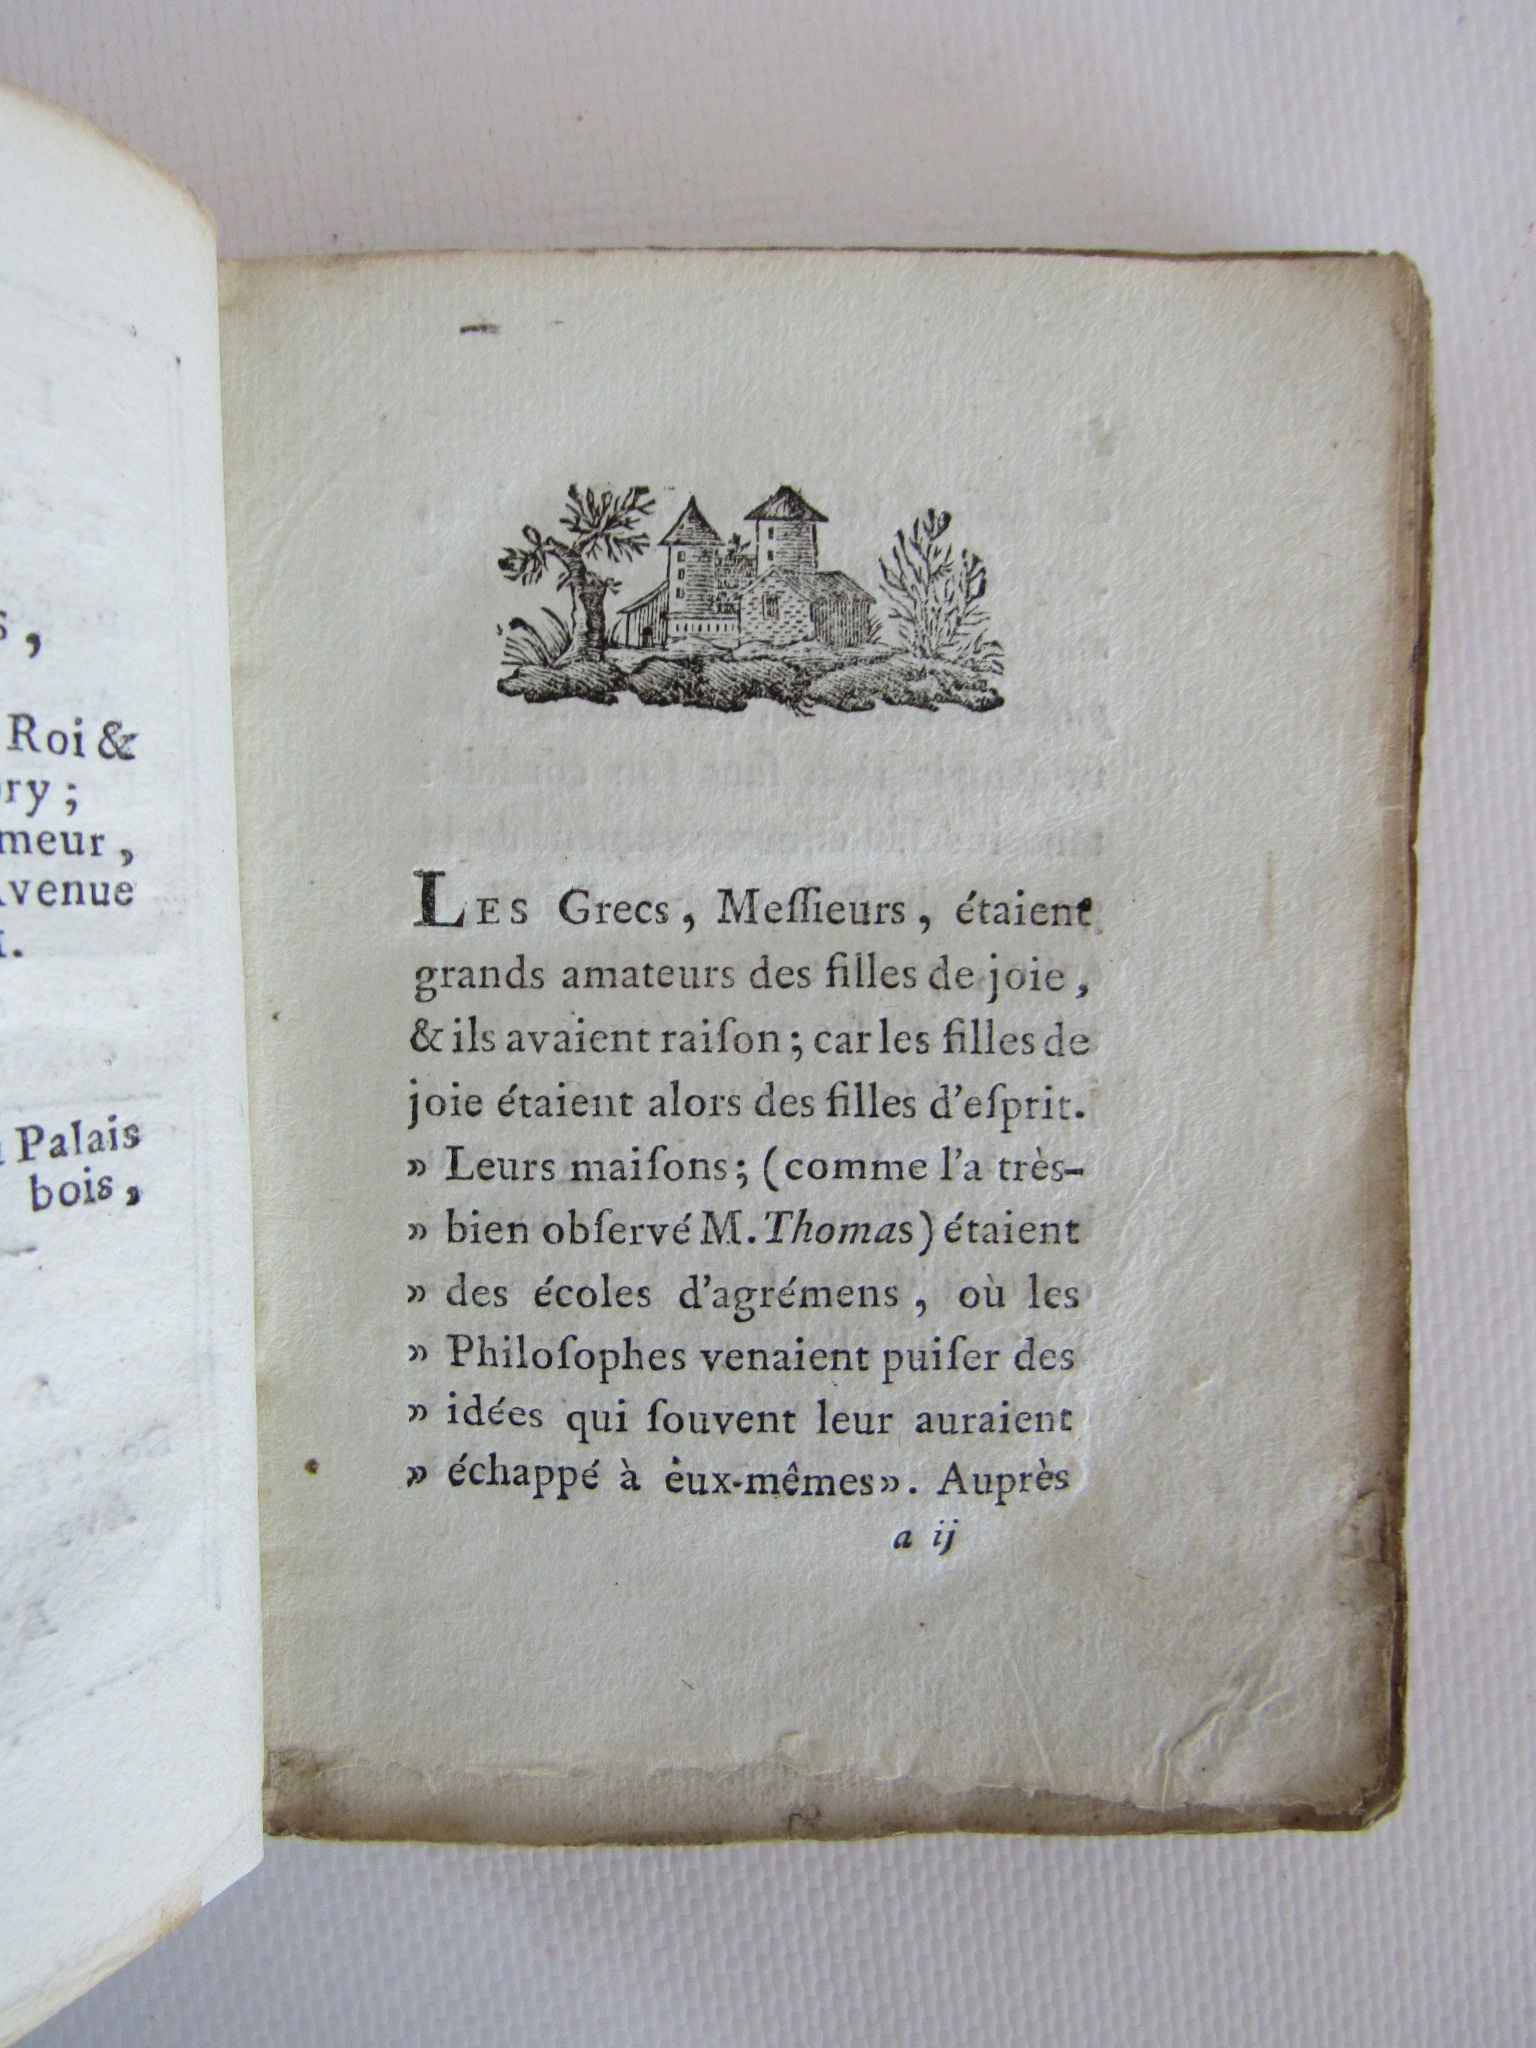 s,
Roi &
ory ;
meur,
Avenue
Palais
bois,
LES Grecs, Meſſieurs, étaient
grands amateurs des filles de joie,
& ils avaient raiſon; car les filles de
joie étaient alors des filles d'eſprit.
» Leurs maiſons; (comme l'a très-
» bien obſervé M. Thomas) étaient
» des écoles d'agrémens, où les
» Philoſophes venaient puiſer des
» idées qui ſouvent leur auraient
» échappé à eux-mêmes». Auprès
a ij